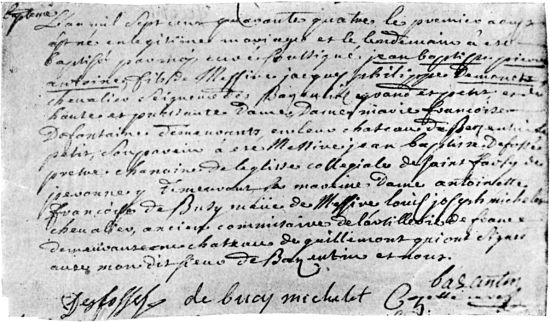 Baptême
L'an mil sept cens quarante quatre le premier aoust
est né en legitime mariage et le lendemain a eté
baptisé par moy curé soussigné jean baptiste pierre
antoine, fils de Messire jacques philippe de monet
chevalier seigneur des Bazentin grand et petit et de
haute et puissante Dame Dame marie françoise
De fontaine demeurants en leur chateau de Bazentin le
petit, son parein a eté Messire jean baptiste De fossé
pretre chanoine de l'eglise collegiale de saint farsy de
peronne y demeurant la mareine Dame antoinette
françoise de Bucy niéce de Messire louis joseph michelet
chevalier, ancien commissaire de l'artillerie de france
demeurante au chateau de guillemont qui ont signé
avec mon dit sieur de Bazentin et nous.
bazentin
Desfossé de bucy michelet